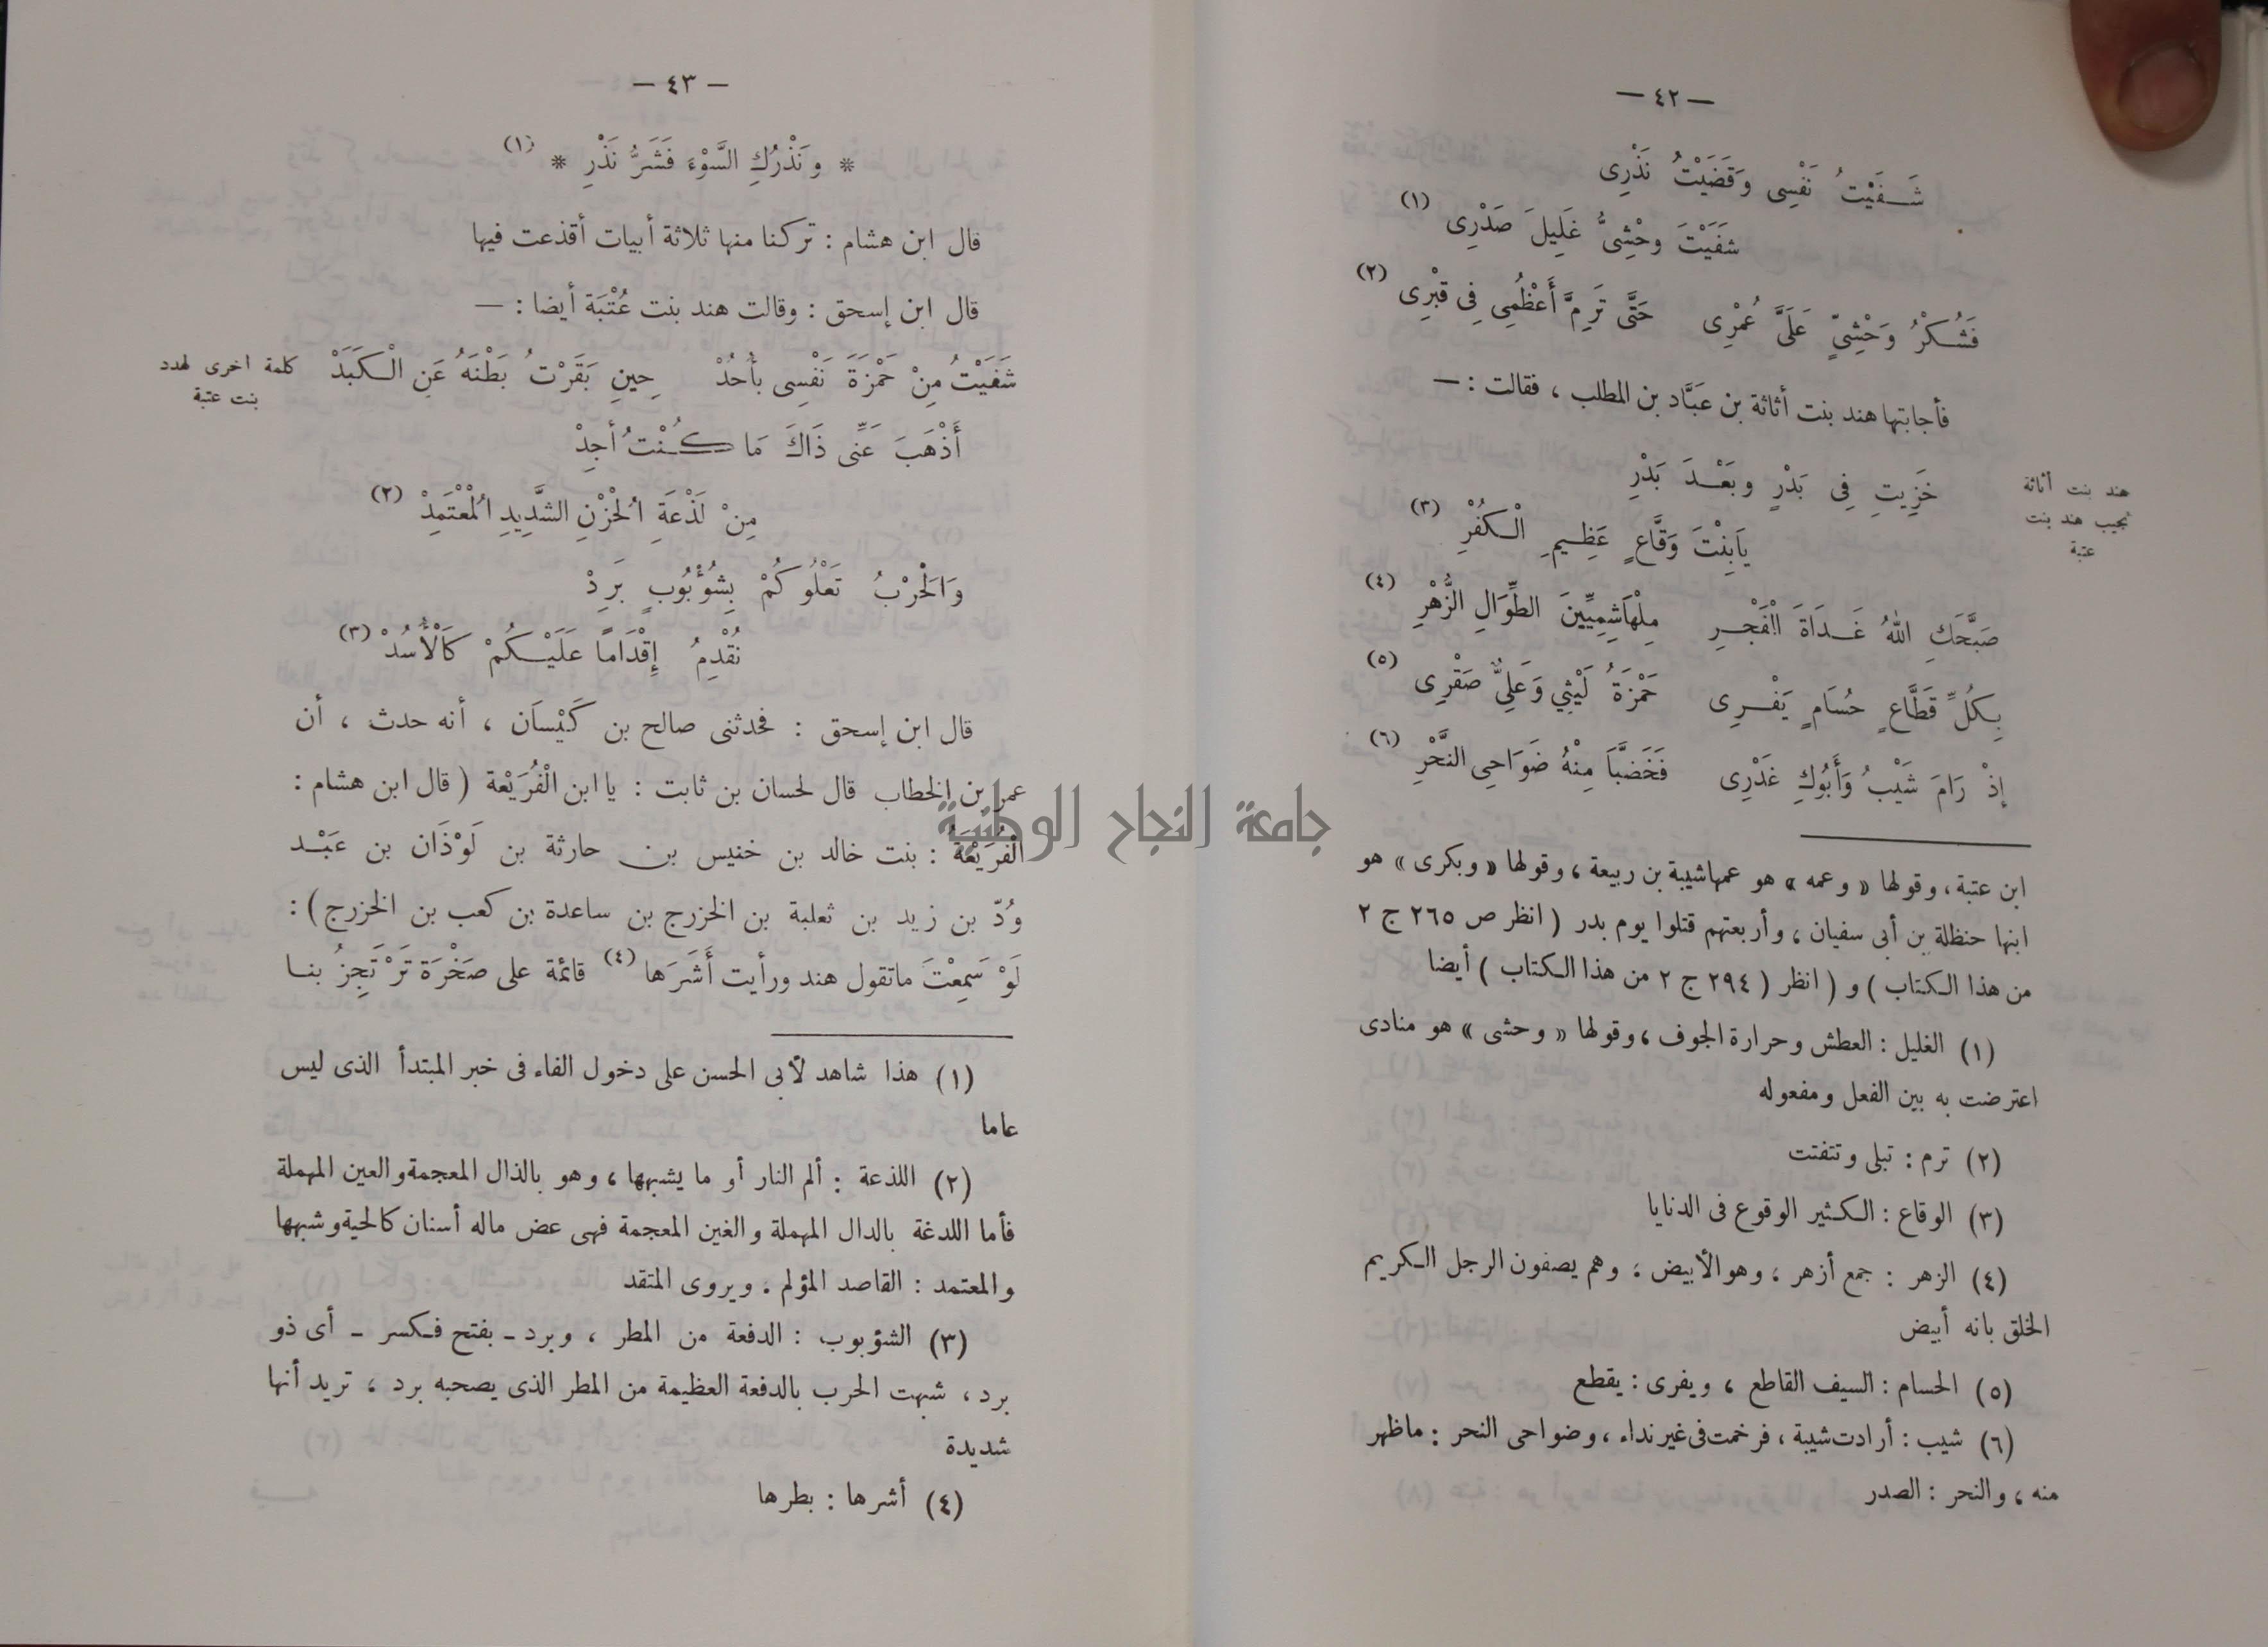 — ٤٢ —
شَفَيْتُ نَفْسِى وَقَضَيْتُ نَذْرِى
شَفَيْتَ وَحْشِىُّ غَلِيلَ صَدْرِى (١)
فَشُكْرُ وَحْشِىٍّ عَلَىَّ عُمْرِى حَتَّى تَرِمَّ أَعْظُمِى فِى قَبْرِى (٢)
فأجابتها هند بنت أثاثة بن عَبَّاد بن المطلب ، فقالت : —
خَزِيتِ فِى بَدْرٍ وبَعْدَ بَدْرِ
هند بنت أثاثة
تجيب هند بنت
عتبة
يَابِنْتَ وَقَّاعٍ عَظِيمِ الْكُفْرِ (٣)
صَبَّحَكِ اللهُ غَدَاةَ الْفَجْرِ مِلْهَاشِمِيِّينَ الطِّوَالِ الزُّهْرِ (٤)
بِكُلِّ قَطَّاعٍ حُسَامٍ يَفْرِى حَمْزَةُ لَيْثِي وَعَلِىٌّ صَقْرِى (٥)
إِذْ رَامَ شَيْبُ وَأَبُوكِ غَدْرِى فَخَضَّبَا مِنْهُ ضَوَاحِى النَّحْرِ (٦)
ابن عتبة ، وقولها « وعمه » هو عمها شيبة بن ربيعة ، وقولها « وبكرى » هو
ابنها حنظلة بن أبى سفيان ، وأربعتهم قتلوا يوم بدر ( انظر ص ٢٦٥ ج ٢
من هذا الكتاب ) و ( انظر ( ٢٩٤ ج ٢ من هذا الكتاب ) أيضا
(١) الغليل : العطش وحرارة الجوف ، وقولها « وحشى » هو منادى
اعترضت به بين الفعل ومفعوله
(٢) ترم : تبلى وتتفتت
(٣) الوقاع : الكثير الوقوع فى الدنايا
(٤) الزهر : جمع أزهر ، وهو الأبيض ، وهم يصفون الرجل الكريم
الخلق بانه أبيض
(٥) الحسام : السيف القاطع ، ويفرى : يقطع
(٦) شيب : أرادت شيبة ، فرخمت فى غير نداء ، وضواحى النحر : ماظهر
منه ، والنحر : الصدر
— ٤٣ —
* وَنَذْرُكِ السَّوْءَ فَشَرُّ نَذْرِ * (١)
قال ابن هشام : تركنا منها ثلاثة أبيات أقذعت فيها
قال ابن إسحق : وقالت هند بنت عُتْبَة أيضا : —
شَفَيْتُ مِنْ حَمْزَةَ نَفْسِى بأُحُدْ حِينِ بَقَرْتُ بَطْنَهُ عَنِ الْكَبَدْ
كلمة اخرى لهند
بنت عتبة
أَذْهَبَ عَنِّى ذَاكَ مَا كُنْتُ أجِدْ
مِنْ لَذْعَةِ الْحُزْنِ الشَّدِيدِ الْمُعْتَمِدْ (٢)
وَالْحَرْبُ تَعْلُوكُمْ بِشُؤْبُوبٍ بَرِدْ
نُقْدِمُ إِقْدَامًا عَلَيْكُمْ كَالْأُسُدْ (٣)
قال ابن إسحق : فحدثنى صالح بن كَيْسَان ، أنه حدث ، أن
عمر بن الخطاب قال لحسان بن ثابت : يا ابن الْفُرَيْعة ( قال ابن هشام :
الْفُرَيْعَةُ : بنت خالد بن خنيس بن حارثة بن لَوْذَان بن عَبْد
وُدّ بن زيد بن ثعلبة بن الخزرج بن ساعدة بن كعب بن الخزرج ) :
لَوْ سَمِعْتَ ماتقول هند ورأيت أَشَرَها (٤) قائمة على صَخْرَة تَرْتَجِزُ بنا
(١) هذا شاهد لأبى الحسن على دخول الفاء فى خبر المبتدأ الذى ليس
عاما
(٢) اللذعة : ألم النار أو ما يشبهها ، وهو بالذال المعجمة والعين المهملة
فأما اللدغة بالدال المهملة والغين المعجمة فهى عض ماله أسنان كالحية وشبهها
والمعتمد : القاصد المؤلم . ويروى المتقد
(٣) الشؤبوب : الدفعة من المطر ، وبرد ـ بفتح فكسر ـ أى ذو
برد ، شبهت الحرب بالدفعة العظيمة من المطر الذى يصحبه برد ، تريد أنها
شديدة
(٤) أشرها : بطرها
جامعة النجاح الوطنية